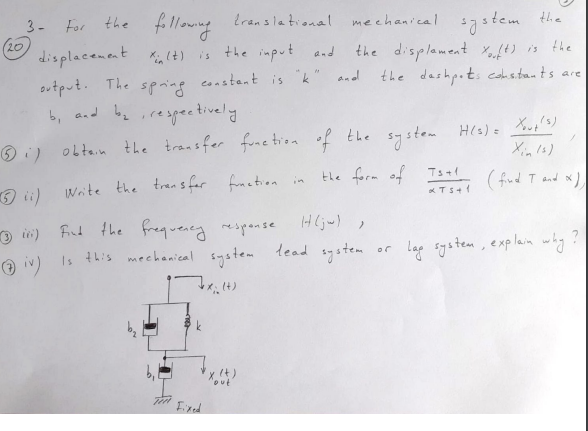 3- For the following translational mechanical system the
(20) displacement x_in(t) is the input and the displament x_out(t) is the
output. The spring constant is "k" and the dashpots constants are
b1 and b2, respectively
(5) i) obtain the transfer function of the system H(s) = X_out(s) / X_in(s),
(5) ii) Write the transfer function in the form of Ts+1 / αTs+1 (find T and α),
(3) iii) Find the frequency response H(jw),
(7) iv) Is this mechanical system lead system or lag system, explain why?
x_in(t)
b2 k
b1 x_out(t)
Fixed